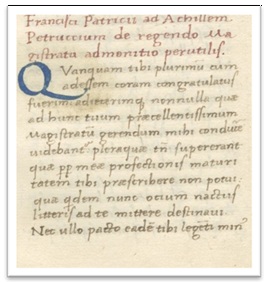 Francisci Patricii ad Achillem
Petruccium de regendo Ma
gistratu admonitio perutilis.
Quanquam tibi plurimũ cum
adessem coram congratulatus
fuerim nonnulla quæ
ad hunc tuum præcellentissimum
Magistratũ gerendum mihi
videbant pleraque tñ supererant
quæ mee profectionis maturi
tatem tibi præscribere non potui
quæ qdem nunc ocium nactus
litteris ad te mittere destinaui.
Nec ullo pacto tibi